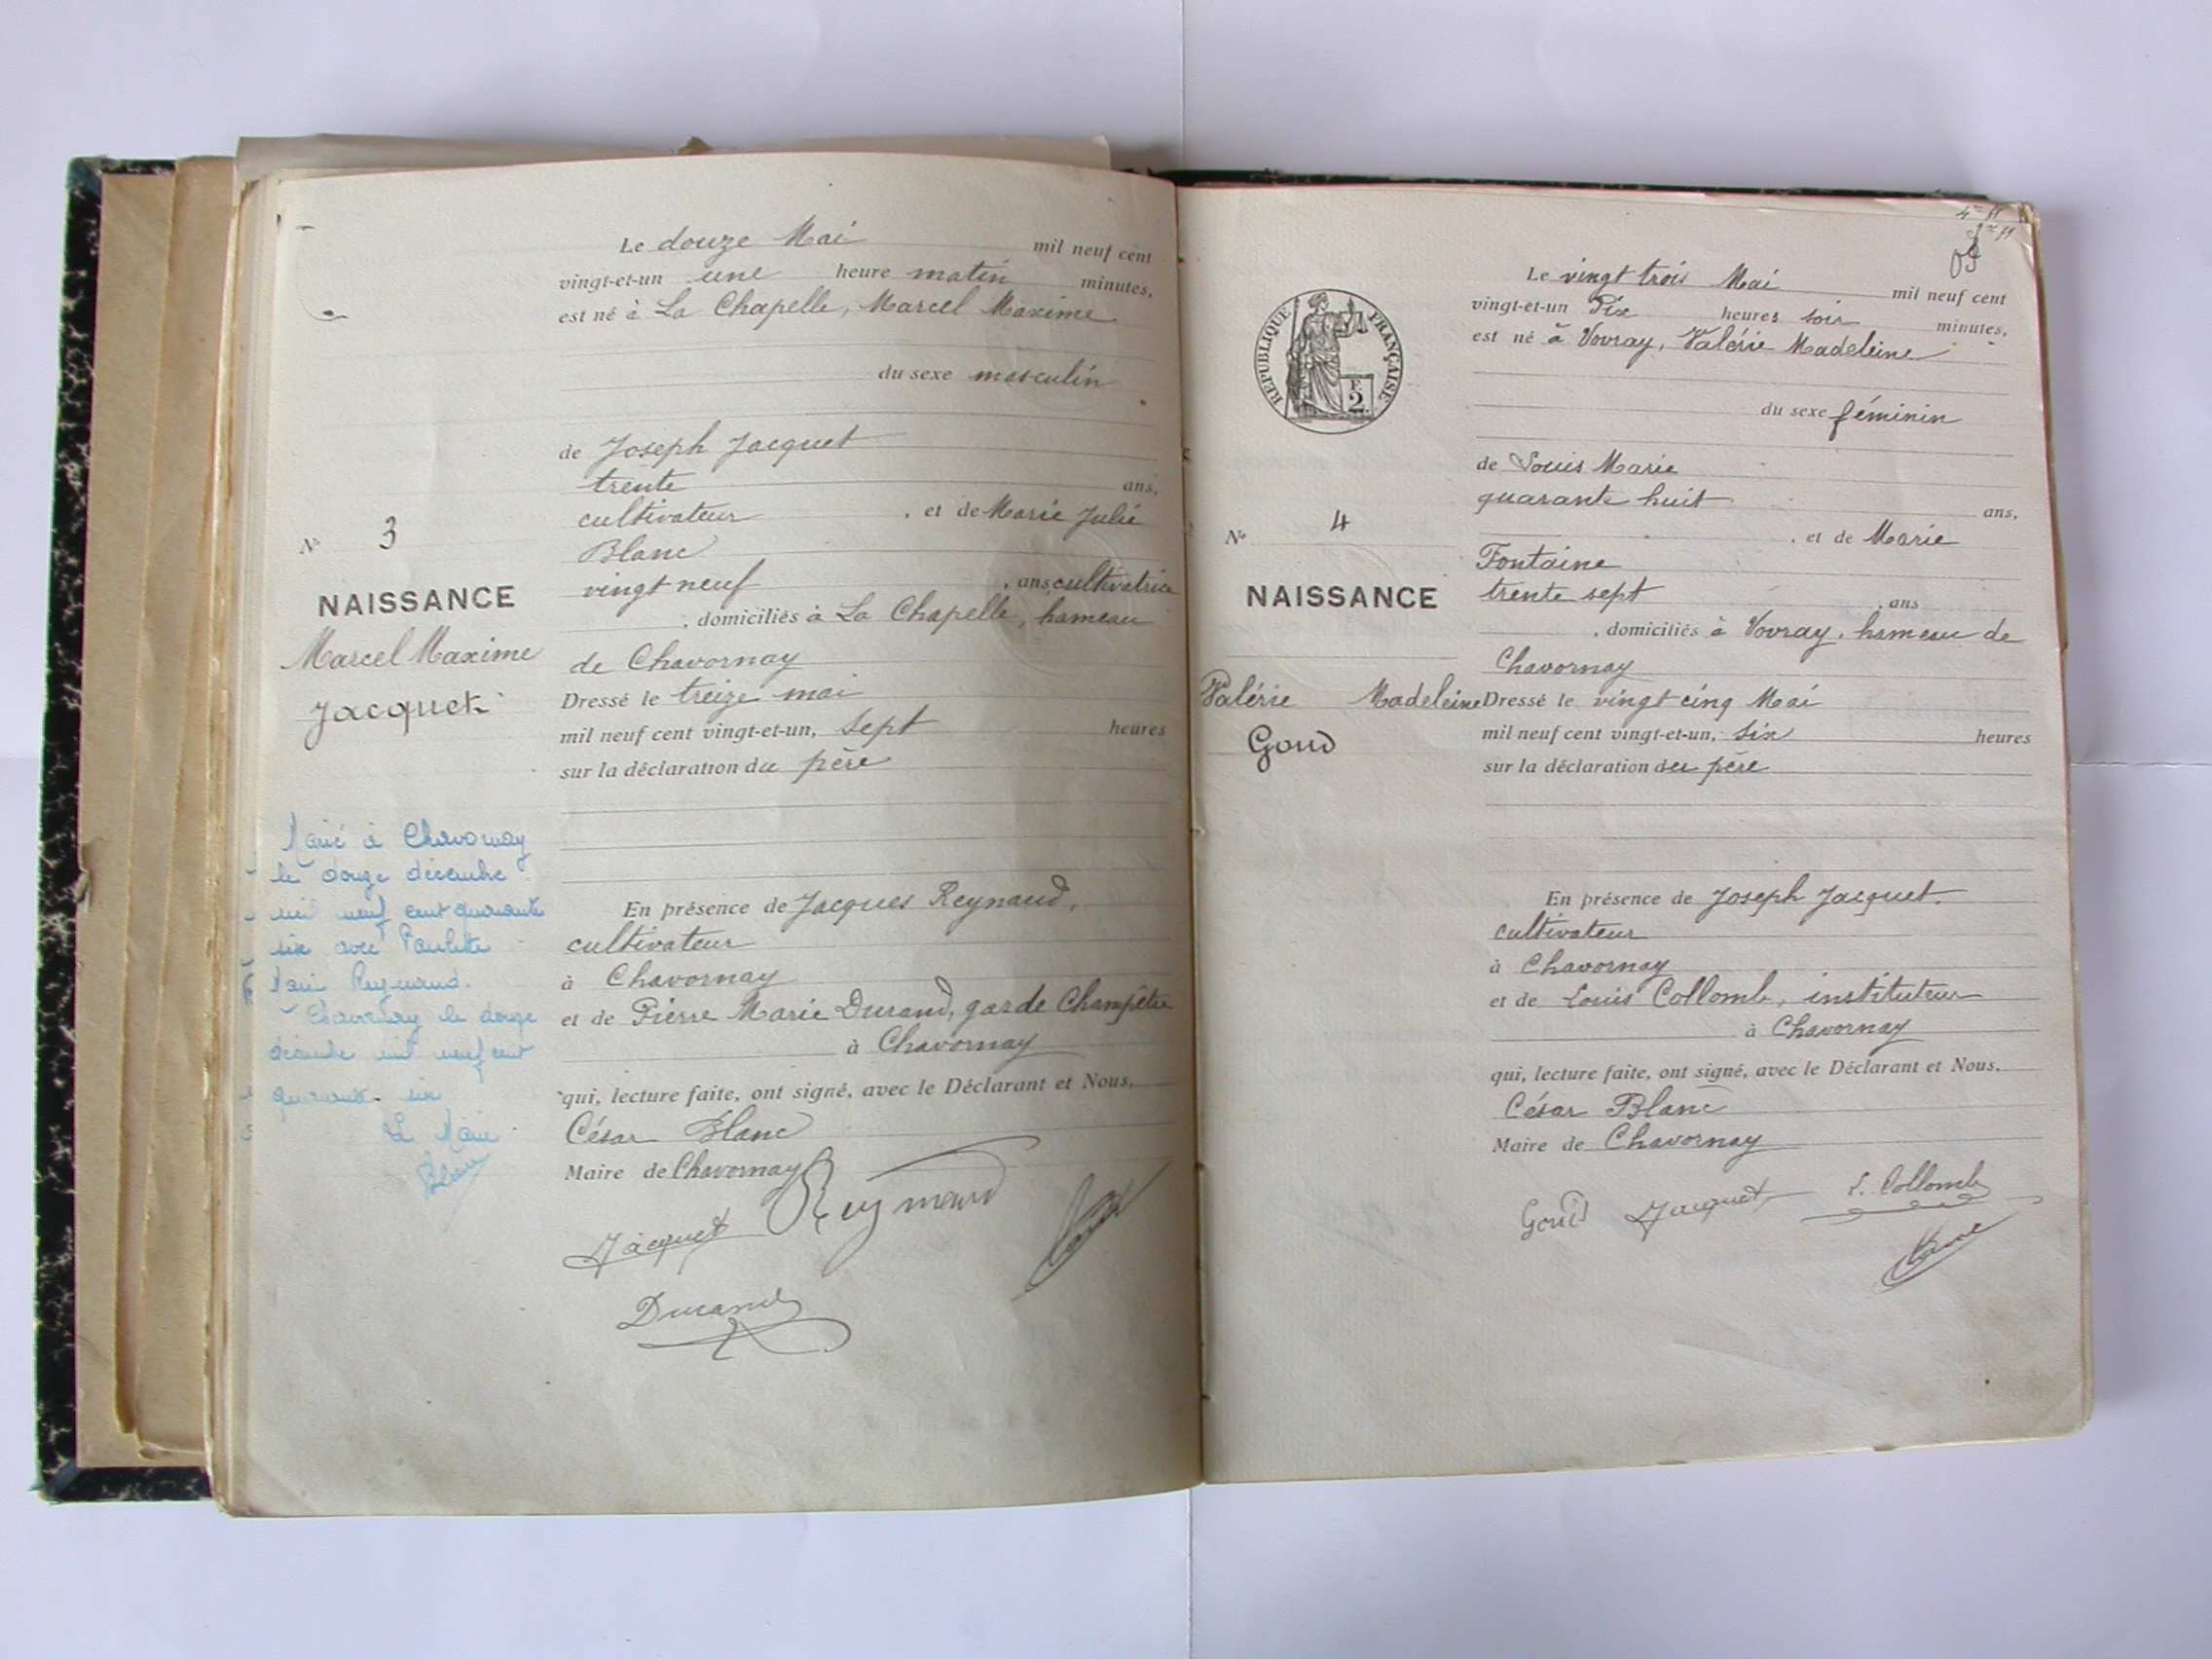 Le douze Mai mil neuf cent
vingt-et-un une heure matin minutes,
est né à La Chapelle, Marcel Maxime
du sexe masculin
de Joseph Jacquet
trente ans,
cultivateur , et de Marie Julie
Blanc
vingt neuf , ans, cultivatrice
, domiciliés à La Chapelle, hameau
de Chavornay
Dressé le treize mai
mil neuf cent vingt-et-un, sept heures
sur la déclaration du père
En présence de Jacques Reynaud,
cultivateur
à Chavornay
et de Pierre Marie Durand, garde Champêtre
à Chavornay
qui, lecture faite, ont signé, avec le Déclarant et Nous,
César Blanc
Maire de Chavornay
Jacquet Reynaud
Durand
N° 3
NAISSANCE
Marcel Maxime
Jacquet
Marié à Chavornay
le douze décembre
mil neuf cent quarante
six avec Paulette
Reynaud.
Chavornay le douze
décembre mil neuf cent
quarante six
Le Maire
Blanc
RÉPUBLIQUE FRANÇAISE
F.
2
N° 4
NAISSANCE
Valérie Madeleine
Goud
Le vingt trois Mai mil neuf cent
vingt-et-un Dix heures soir minutes,
est né à Vovray, Valérie Madeleine
du sexe féminin
de Louis Marie
quarante huit ans,
, et de Marie
Fontaine
trente sept , ans
, domiciliés à Vovray, hameau de
Chavornay
Dressé le vingt cinq Mai
mil neuf cent vingt-et-un, six heures
sur la déclaration du père
En présence de Joseph Jacquet,
cultivateur
à Chavornay
et de Louis Collomb, instituteur
à Chavornay
qui, lecture faite, ont signé, avec le Déclarant et Nous,
César Blanc
Maire de Chavornay
Goud Jacquet L. Collomb
Blanc